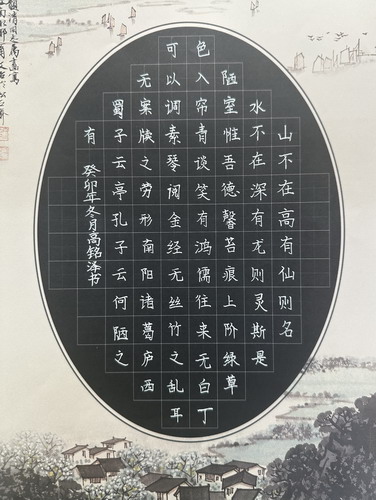 山不在高有仙则名
水不在深有龙则灵斯是
陋室惟吾德馨苔痕上阶绿草
色入帘青谈笑有鸿儒往来无白丁
可以调素琴阅金经无丝竹之乱耳
无案牍之劳形南阳诸葛庐西
蜀子云亭孔子云何陋之
有
癸卯年冬月高铭泽书